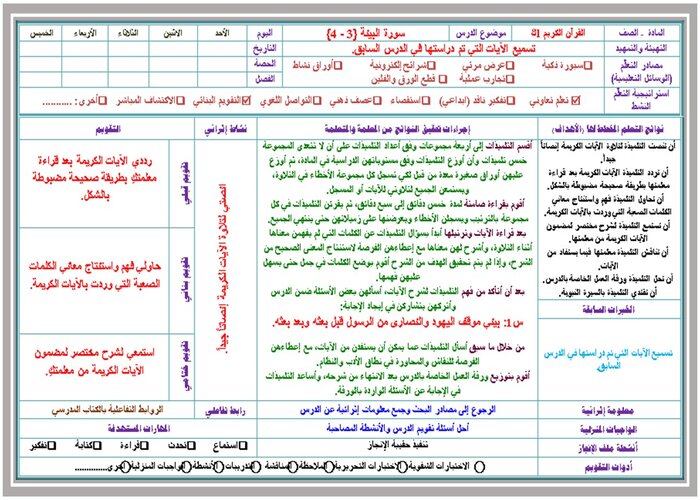 المادة - الصف
القرآن الكريم 1ك
موضوع الدرس
سورة البينة {3 - 4}
اليوم
الأحد
الاثنين
الثلاثاء
الأربعاء
الخميس
التهيئة والتمهيد
تسميع الآيات التي تم دراستها في الدرس السابق.
التاريخ
مصادر التعلم
(الوسائل التعليمية)
سبورة ذكية
عرض مرئي
شرائح إلكترونية
أوراق نشاط
تجارب عملية
قطع الورق والفلين
الحصة
الفصل
استراتيجية التعلم
النشط
تعلم تعاوني
تفكير ناقد (ابداعي)
استقصاء
عصف ذهني
التواصل اللغوي
التقويم البنائي
الاكتشاف المباشر
أخرى: ..........
نواتج التعلم المخطط لها (الأهداف)
إجراءات تحقيق النواتج من المعلمة والمتعلمة
نشاط إثرائي
التقويم
أن تنصت التلميذة لتلاوة الآيات الكريمة إنصاتاً
جيداً.
أن تردد التلميذة الآيات الكريمة بعد قراءة
معلمتها بطريقة صحيحة مضبوطة بالشكل.
أن تحاول التلميذة فهم واستنتاج معاني
الكلمات الصعبة التي وردت بالآيات الكريمة.
أن تستمع التلميذة لشرح مختصر لمضمون
الآيات الكريمة من معلمتها.
أن تناقش التلميذة معلمتها فيما يستفاد من
الآيات.
أن تحل التلميذة ورقة العمل الخاصة بالدرس.
أن تقتدي التلميذة بالسيرة النبوية.
الخبرات السابقة
تسميع الآيات التي تم دراستها في الدرس
السابق.
أقسم التلميذات إلى أربعة مجموعات وفق أعداد التلميذات على أن لا تتعدى المجموعة
خمس تلميذات وأن أوزع التلميذات وفق مستوياتهن الدراسية في المادة، ثم أوزع
عليهن أوراق صغيرة معدة من قبل لكي تسجل كل مجموعة الأخطاء في التلاوة،
ويستمعن الجميع لتلاوتي للآيات أو المسجل.
أقوم بقراءة صامتة لمدة خمس دقائق إلى سبع دقائق، ثم يقرئن التلميذات في كل
مجموعة بالترتيب ويسجلن الأخطاء ويعرضنها على زميلاتهن حتى ينتهي الجميع.
بعد قراءة الآيات وترتيلها أبدأ بسؤال التلميذات عن الكلمات التي لم يفهمن معناها
أثناء التلاوة، وأشرح لهن معناها مع إعطاءهن الفرصة لاستنتاج المعنى الصحيح من
الشرح، وإذا لم يتم تحقيق الهدف من الشرح أقوم بوضع الكلمات في جمل حتى يسهل
عليهن فهمها.
بعد أن أتأكد من فهم التلميذات لشرح الآيات، أسألهن بعض الأسئلة ضمن الدرس
وأتركهن يتشاركن في إيجاد الإجابة:
س1: بيني موقف اليهود والنصارى من الرسول قبل بعثه وبعد بعثه.
من خلال ما سبق أسأل التلميذات عما يمكن أن يستفدن من الآيات، مع إعطاءهن
الفرصة للنقاش والمحاورة في نطاق الأدب والنظام.
أقوم بتوزيع ورقة العمل الخاصة بالدرس بعد الانتهاء من شرحه، وأساعد التلميذات
في الإجابة عن الأسئلة الواردة بالورقة.
أنصتي لتلاوة الآيات الكريمة إنصاتاً جيداً.
تقويم قبلي
رددي الآيات الكريمة بعد قراءة
معلمتك بطريقة صحيحة مضبوطة
بالشكل.
تقويم بنائي
حاولي فهم واستنتاج معاني الكلمات
الصعبة التي وردت بالآيات الكريمة.
تقويم ختامي
استمعي لشرح مختصر لمضمون
الآيات الكريمة من معلمتك.
معلومة إثرائية
الرجوع إلى مصادر البحث وجمع معلومات إثرائية عن الدرس
رابط تفاعلي
الروابط التفاعلية بالكتاب المدرسي
الواجبات المنزلية
أحل أسئلة تقويم الدرس والأنشطة المصاحبة
المهارات المستهدفة
أنشطة ملف الإنجاز
تنفيذ حقيبة الإنجاز
استماع
تحدث
قراءة
كتابة
تفكير
أدوات التقويم
الاختبارات الشفوية
الاختبارات التحريرية
الملاحظة
المناقشة
التدريبات
الأنشطة
الواجبات المنزلية
أخرى..............